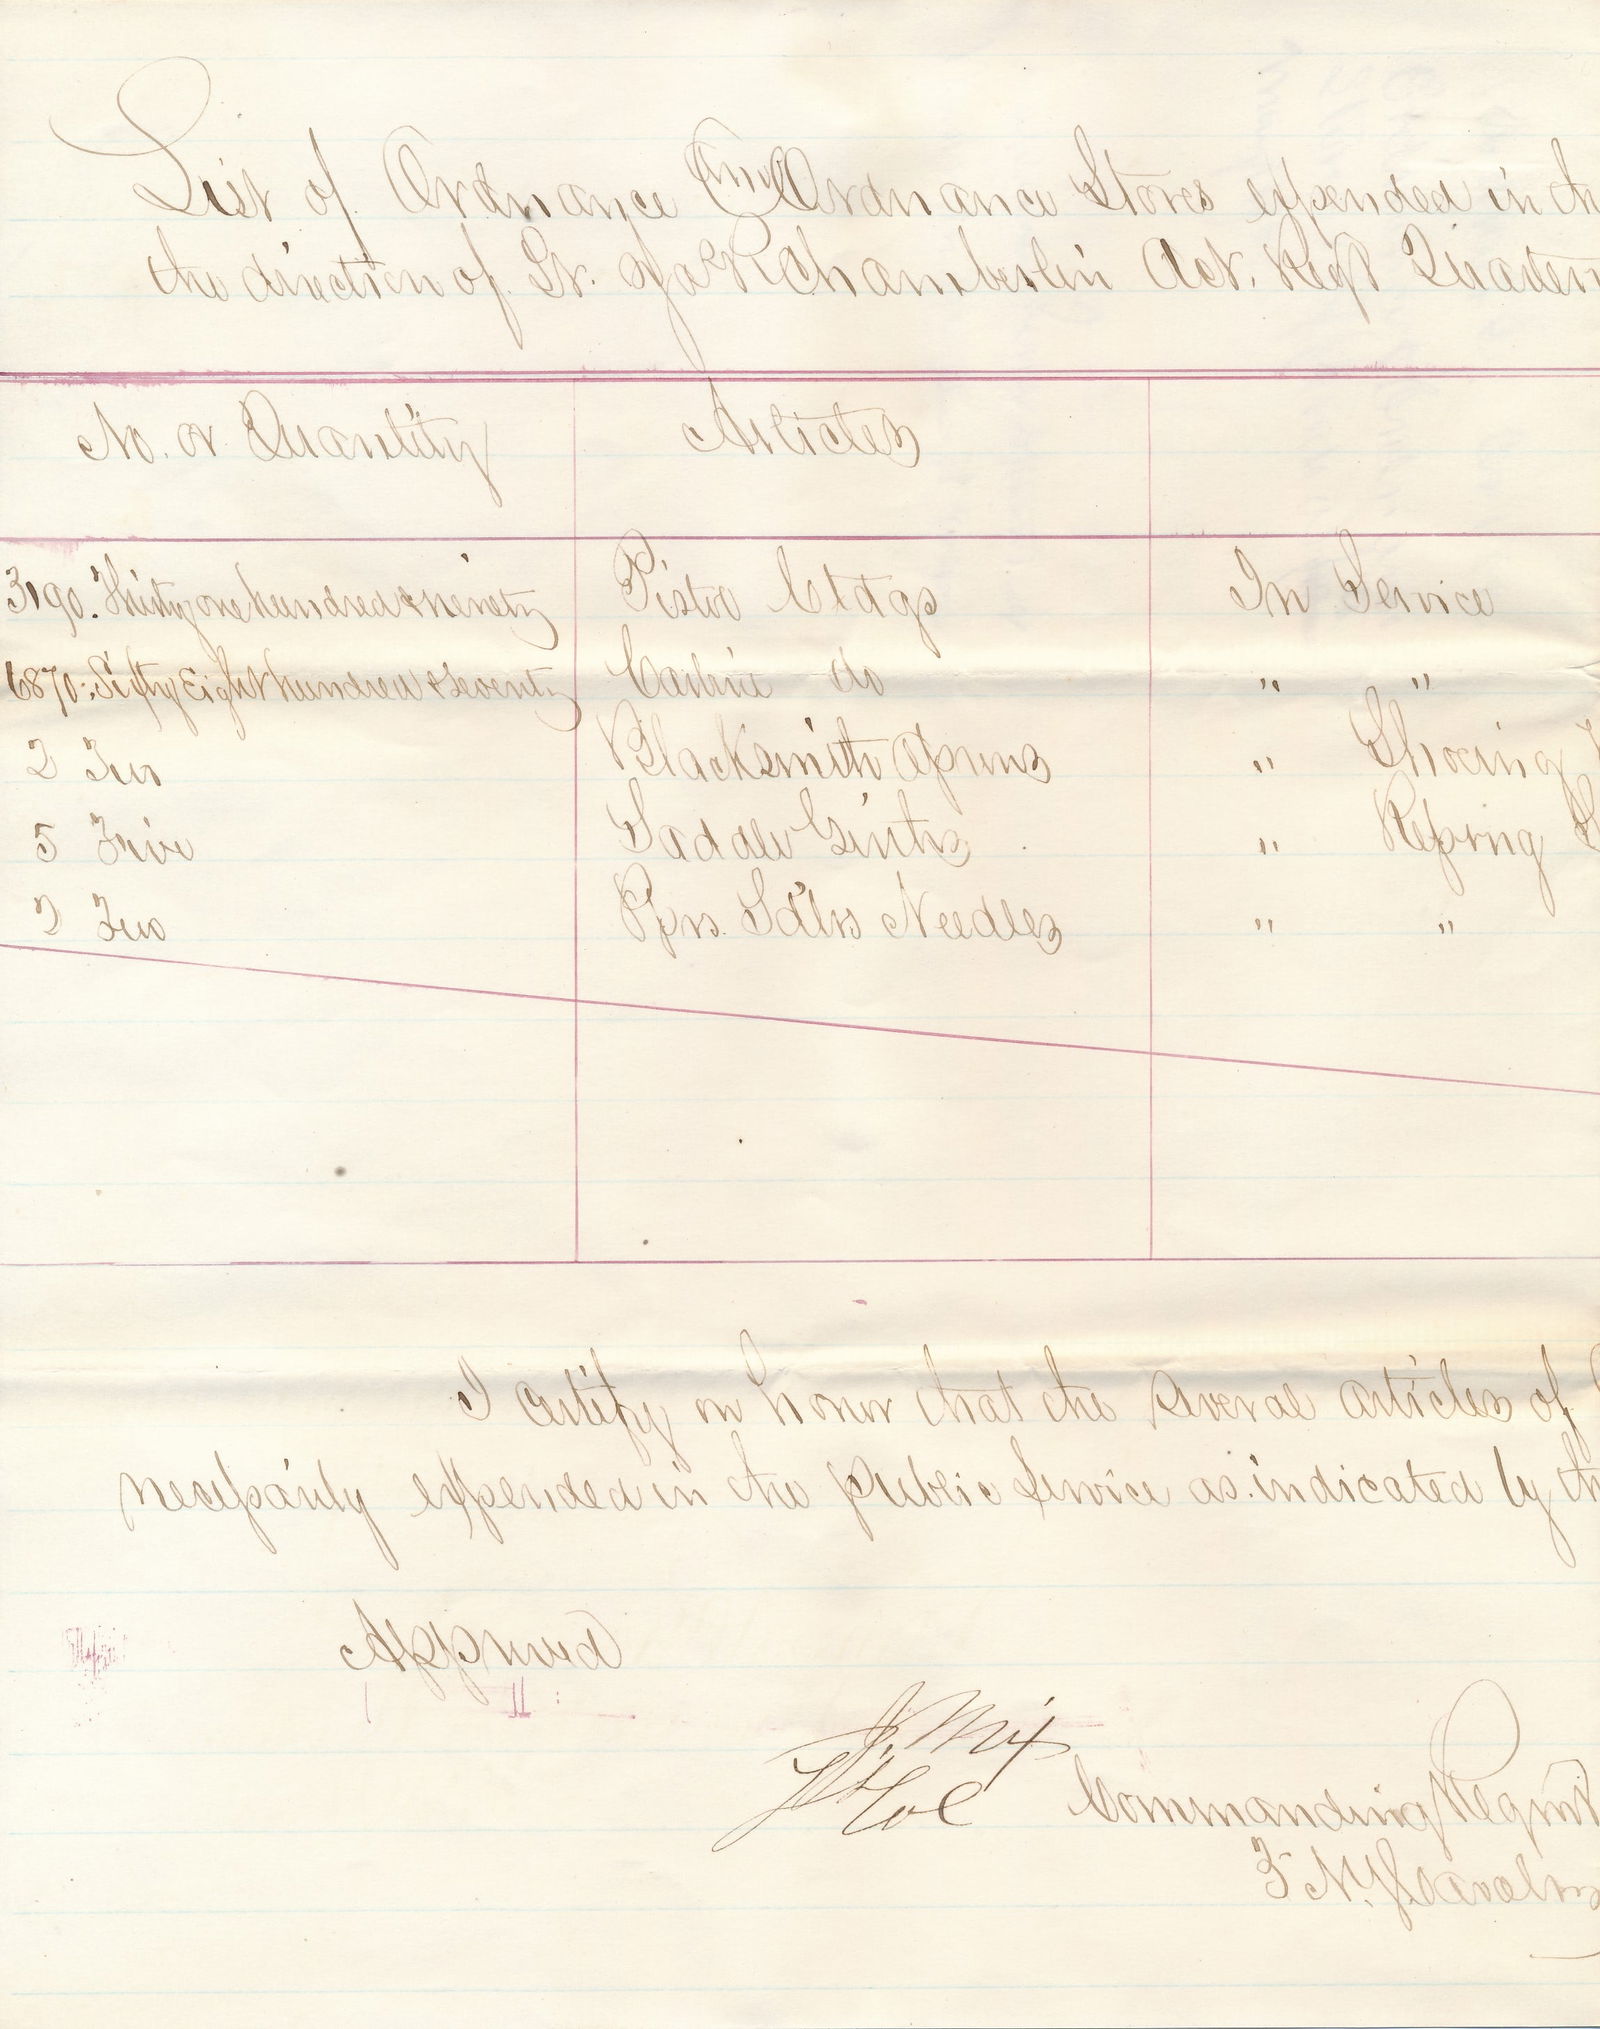 List of Ordnance and Ordnance Stores expended in the
the direction of Lt. Chamberlin Act. Regt Quarterm
No. or Quantity Articles
3190. Thirty one hundred & ninety Pistol Ctdgs In Service
6870. Sixty Eight hundred & Seventy Carbine do " "
2 Two Blacksmith Aprons " Shoeing
5 Five Saddle Girths " Reprng S
2 Two Prs. Sdlrs Needles " "
I certify on honor that the several articles of
necessarily expended in the public Service as indicated by th
Approved
J. Mix
Lt Col Commanding Regmt
3 N.Y. Cavalry